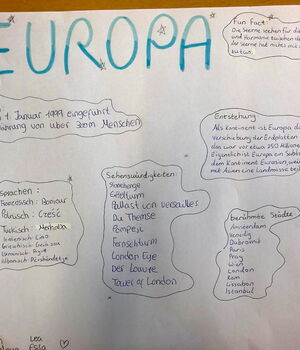 EUROPA
Fun Fact:
Die Sterne stehen für die
und Harmonie zwischen de
der Sterne hat nichts mit
zu tun.
1. Januar 1999 eingeführt
Währung von über 300m Menschen
Entstehung
Als Kontinent ist Europa d
Verschiebung der Erdplatten
das war vor etwa 250 Millione
Eigentlich ist Europa ein Subk
dem Kontinent Eurasien, wei
mit Asien eine Landmasse teil
sprachen:
Französisch: Bonjour
Polnisch: Cześć
Türkisch: Merhaba
Italienisch: Ciao
Griechisch:
Albanisch: Përshëndetje
Sehenswürdigkeiten
Stonehenge
Eiffelturm
Pallast von Versailles
Die Themse
Pompeji
Fernsehturm
London Eye
Der Louvre
Tower of London
berühmte Städte
Amsterdam
Venedig
Dubrovnik
Paris
Prag
Wien
London
Rom
Lissabon
Istanbul
Lea